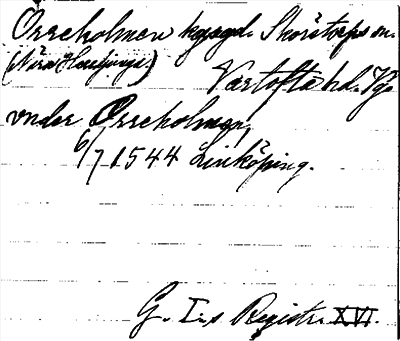 Orreholmen kgsgd. Skörstorps sn.
(Nära Hvarf) Vartofta hd. Vg.
under Orreholmen,
6/7 1544 Linköping.
G. I:s Registr. XVI.